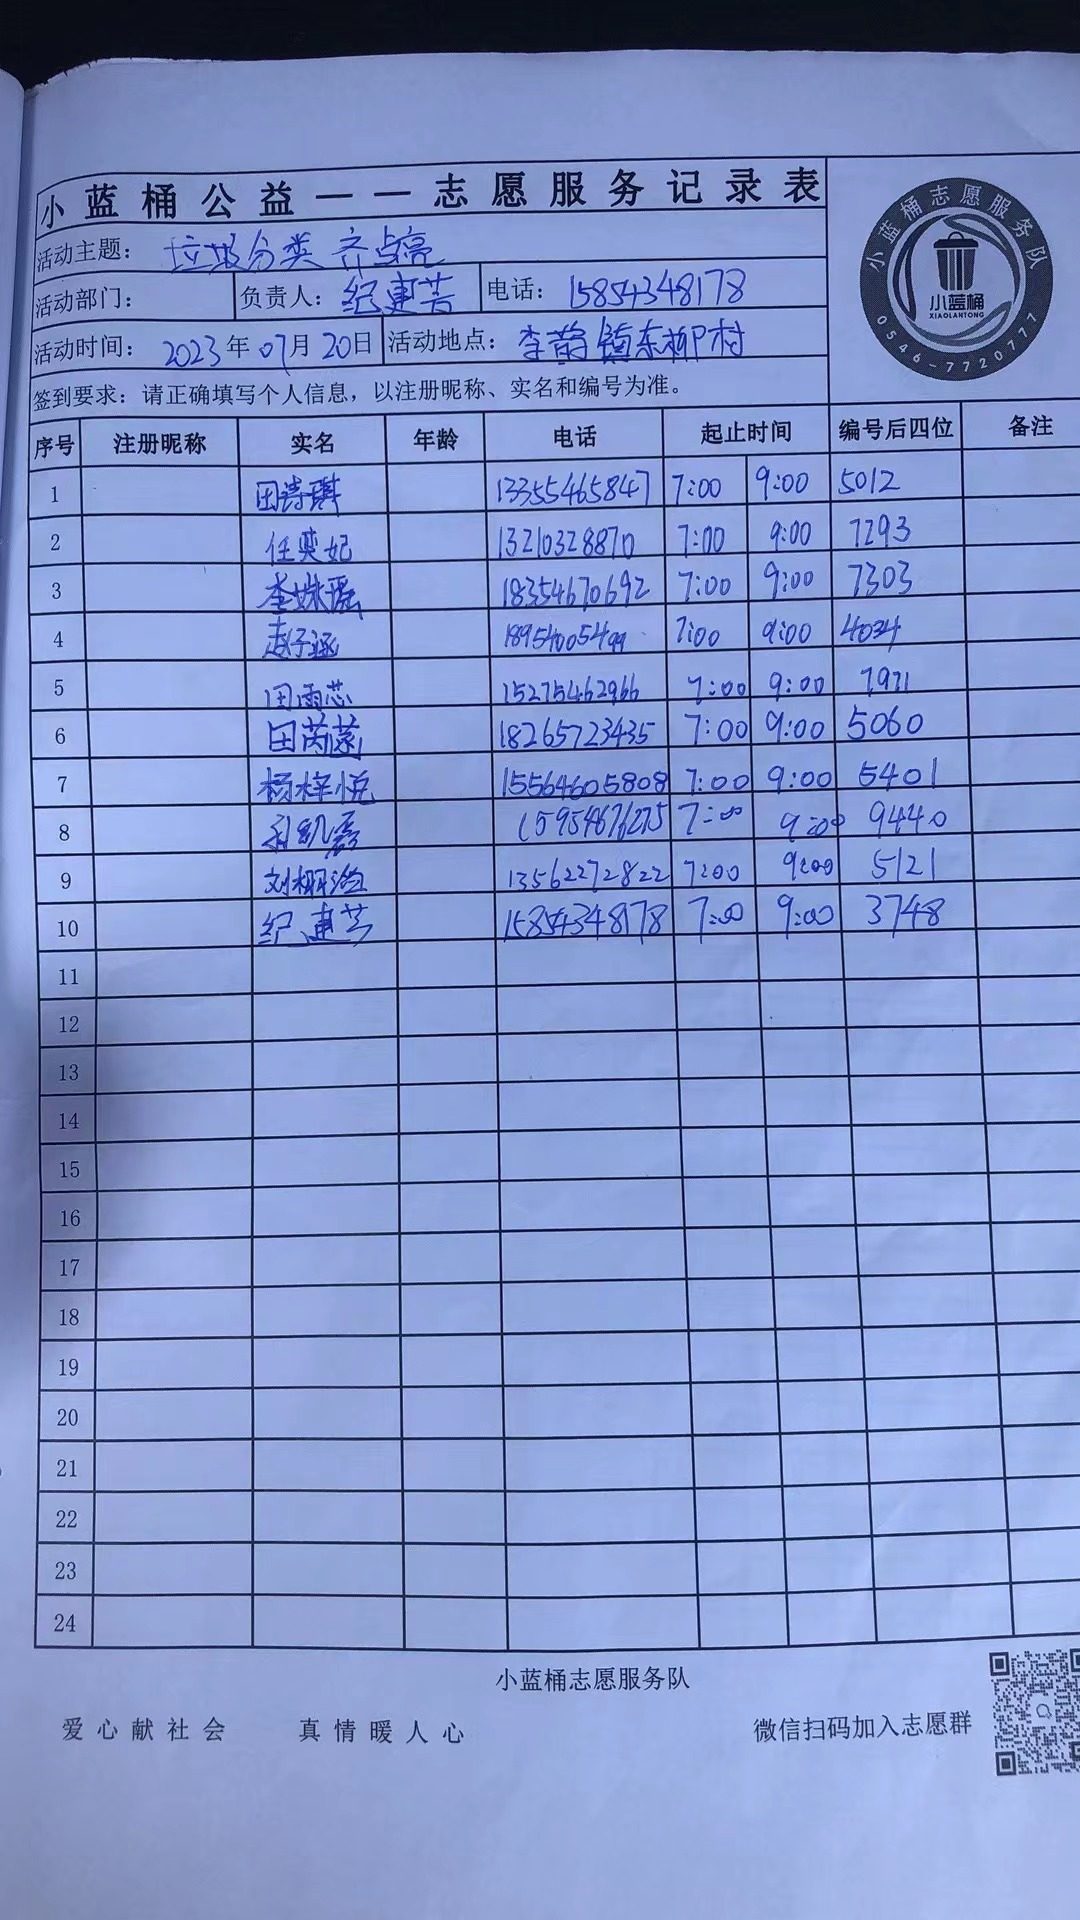 小蓝桶公益——志愿服务记录表
活动主题： 垃圾分类 齐点亮
活动部门： 负责人：纪建芳 电话：15854348178
活动时间： 2023年07月20日 活动地点： 李鹊镇东柳村
签到要求：请正确填写个人信息，以注册昵称、实名和编号为准。
小蓝桶志愿服务队
小蓝桶
XIAOLANTONG
0546-7720777
序号 注册昵称 实名 年龄 电话 起止时间 编号后四位 备注
1 田诗琪 13355465847 7:00 9:00 5012
2 任奕妃 13210328870 7:00 9:00 7293
3 李姝瑶 18354670692 7:00 9:00 7303
4 赵子涵 18954005499 7:00 9:00 4034
5 田雨芯 15275462966 7:00 9:00 7971
6 田芮菡 18265723435 7:00 9:00 5060
7 杨梓悦 15564605808 7:00 9:00 5401
8 15954676275 7:00 9:00 9440
9 13562272822 7:00 9:00 5121
10 纪建芳 15854348178 7:00 9:00 3748
11
12
13
14
15
16
17
18
19
20
21
22
23
24
小蓝桶志愿服务队
爱心献社会 真情暖人心 微信扫码加入志愿群